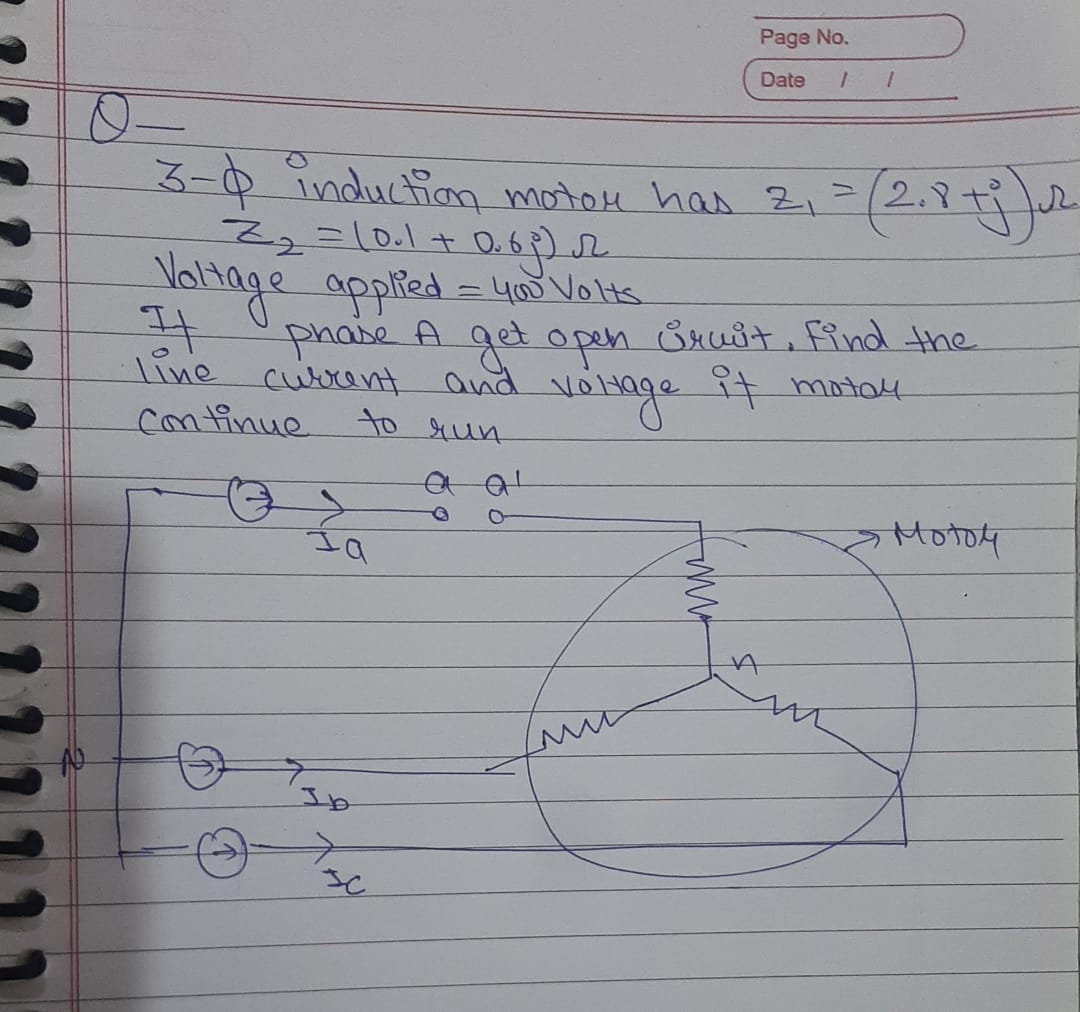 Page No.
Date / /
Q—
3-ϕ induction motor has Z₁ = (2.8+j)Ω
Z₂ = (0.1 + 0.6j) Ω
Voltage applied = 400 Volts
If phase A get open circuit, find the
line current and voltage if motor
continue to run
a a'
Ia
Motor
n
N
Ib
Ic